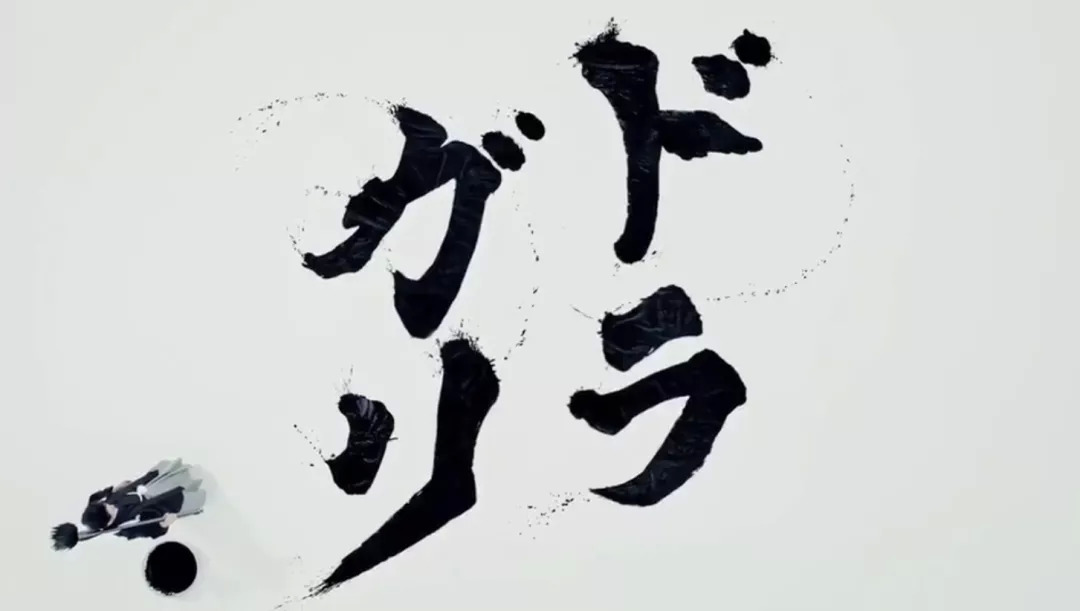 ドラ
ガリ